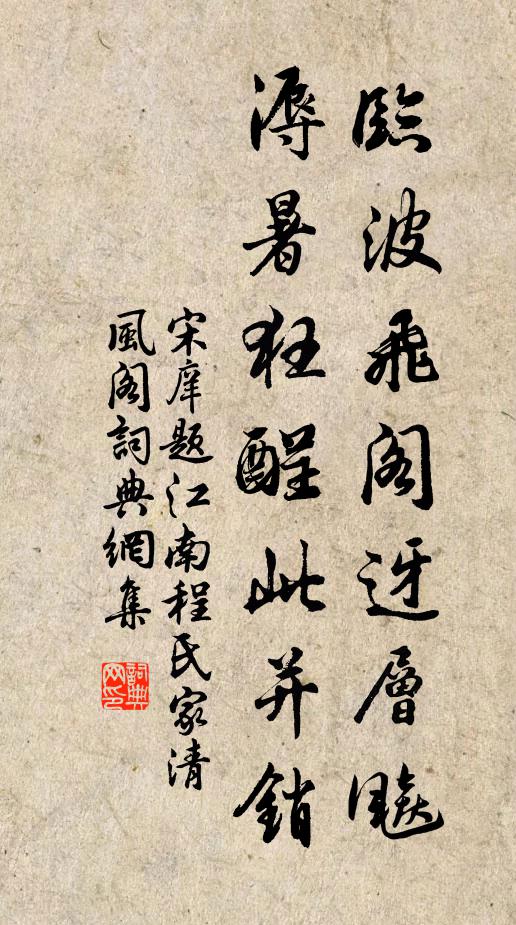 臨波飛閣迓層飇
溽暑狂酲此并銷
宋庠題江南程氏家清
風閣詞典網集
詞典
网印